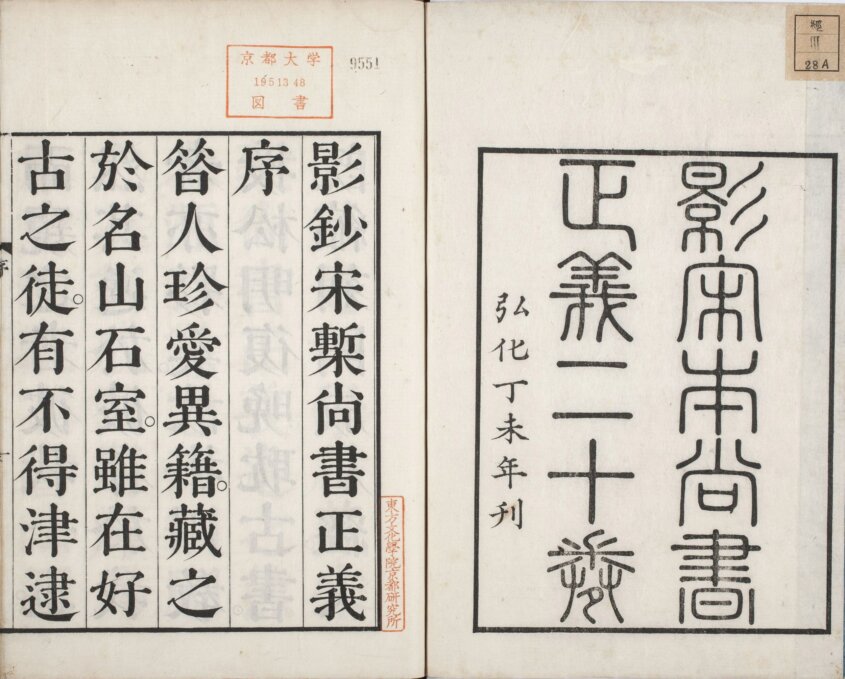 影宋本尚書
正義二十卷
弘化丁未年刊
經
III
28A
京都大学
19513 48
図書
9551
影鈔宋槧尚書正義
序
昝人珍愛異籍。藏之
於名山石室。雖在好
古之徒。有不得津逮
東方文化學院京都研究所
序
一